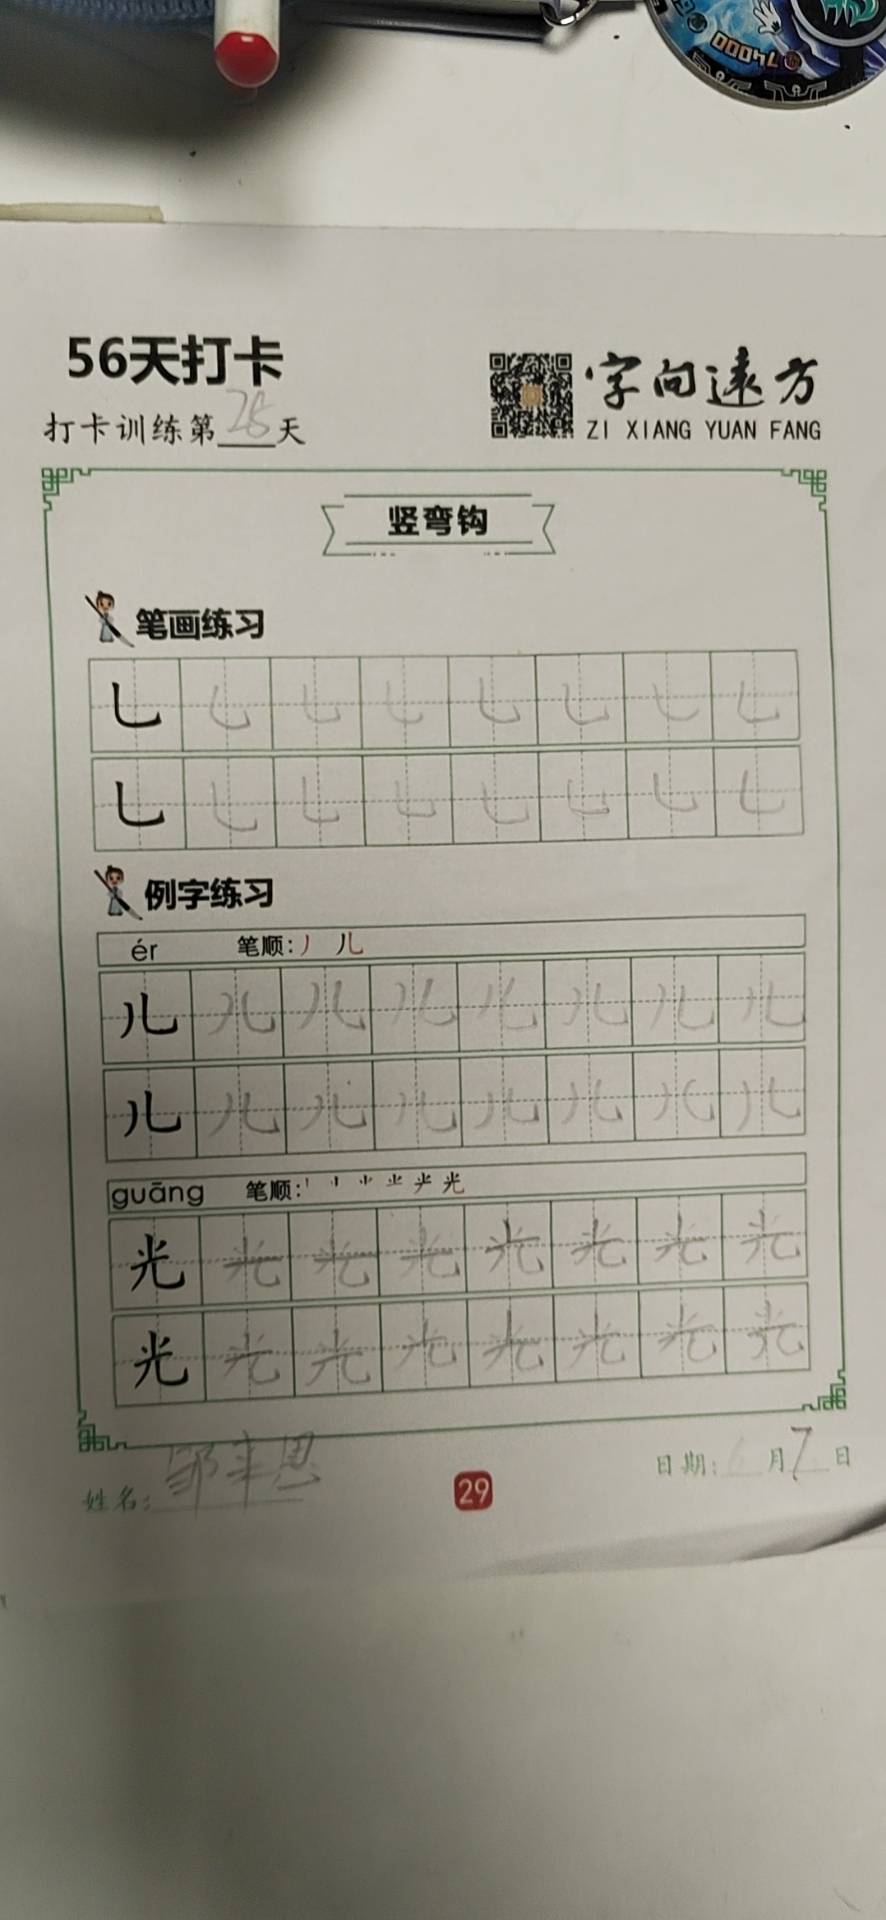 74000
56天打卡
打卡训练第28天
字向远方
ZI XIANG YUAN FANG
竖弯钩
笔画练习
乚 乚 乚 乚 乚 乚 乚 乚
乚 乚 乚 乚 乚 乚 乚 乚
例字练习
ér 笔顺：丿 儿
儿 儿 儿 儿 儿 儿 儿 儿
儿 儿 儿 儿 儿 儿 儿 儿
guāng 笔顺：光
光 光 光 光 光 光 光 光
光 光 光 光 光 光 光 光
姓名：邹丰恩
29
日期：6月7日